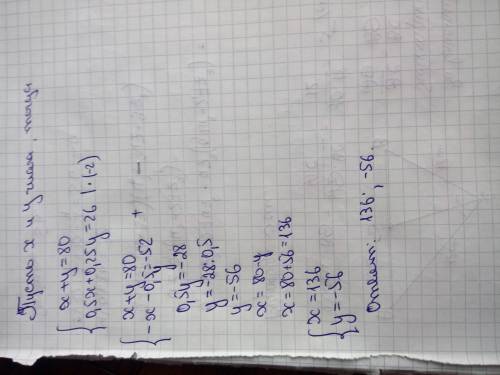 Пусть x и y числа, тогда
{ x+y=80
0,5x+0,25y=26 |·(-2)
{ x+y=80
-x-0,5y=-52 +
0,5y=-28
y=-28:0,5
y=-56
x=80-y
x=80+56=136
{ x=136
y=-56
Ответ: 136; -56.